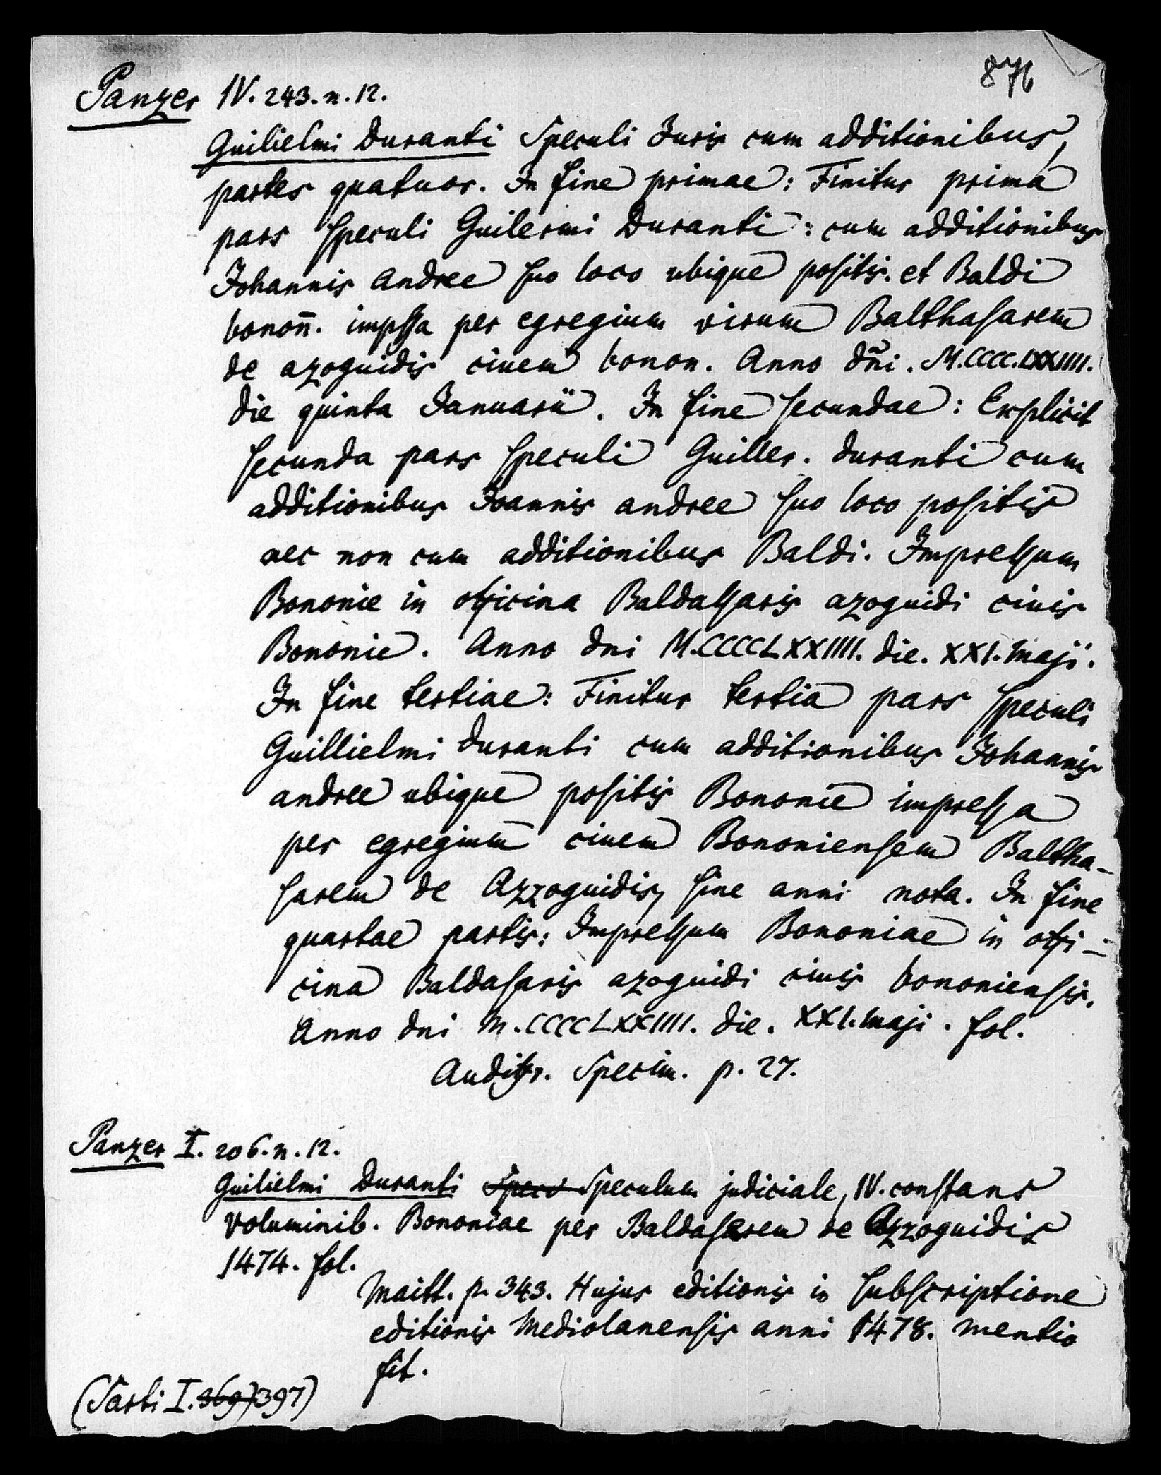 876
Panzer IV. 243. n. 12.
Guilielmi Duranti Speculi Juris cum additionibus,
partes quatuor. In fine primae: Finitur prima
pars speculi Guilermi Duranti: cum additionibus
Johannis Andree suo loco ubique positis. et Baldi
bonon̄. impssa per egregium virum Balthasarem
de azoguidis ciuem bonon. Anno dn̄i. M.CCCC.LXXIIII.
die quinta Januarii. In fine secundae: Explicit
secunda pars speculi Guiller. duranti cum
additionibus Joannis andree suo loco positis
nec non cum additionibus Baldi. Impressum
Bononie in officina Baldassaris azoguidi ciuis
Bononie. Anno dni M.CCCCLXXIIII. die. XXI. maji.
In fine tertiae: Finitur tertia pars speculi
Guillielmi duranti cum additionibus Johannis
andree ubique positis Bononie impressa
per egregium ciuem Bononiensem Baltha-
sarem de Azzoguidis, sine anni nota. In fine
quartae partis: Impressum Bononiae in offi-
cina Baldasaris azoguidi ciuis bononiensis.
Anno dni M.CCCCLXXIIII. die. XXI. maji. fol.
Audifr. Specim. p. 27.
Panzer I. 206. n. 12.
Guilielmi Duranti Speci Speculum judiciale, IV. constans
voluminib. Bononiae per Baldasarem de Azzoguidis
1474. fol.
Maitt. p. 343. Hujus editionis in subscriptione
editionis Mediolanensis anni 1478. mentio
fit.
(Sarti I. 369) 397)